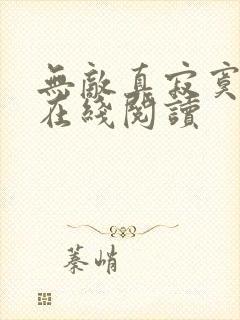 無敵真寂寞
在綫閱讀
蓁峭